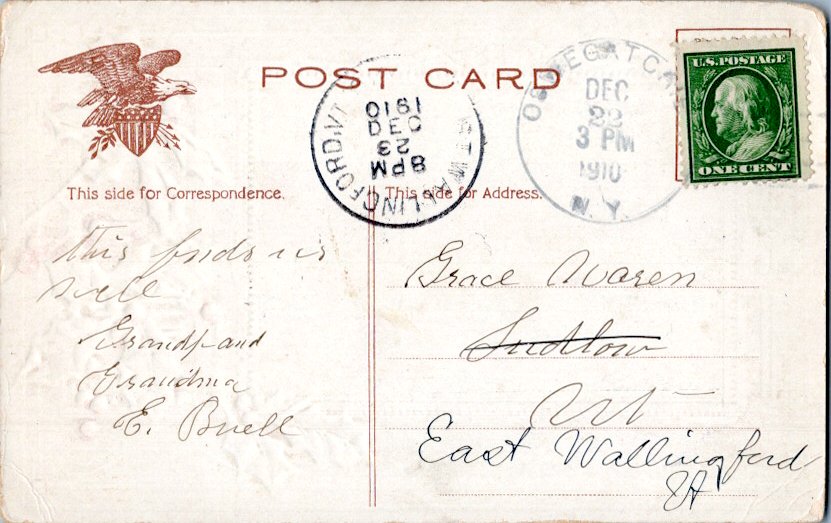 POST CARD
This side for Correspondence.
This side for Address.
EAST WALLINGFORD, VT.
1910
DEC
23
8 PM
DEC
22
3 PM
1910
N. Y.
U.S. POSTAGE
ONE CENT
This finds us
well
Grandp and
Grandma
E. Buell
Grace Waren
Ludlow
Vt
East Wallingford
Vt